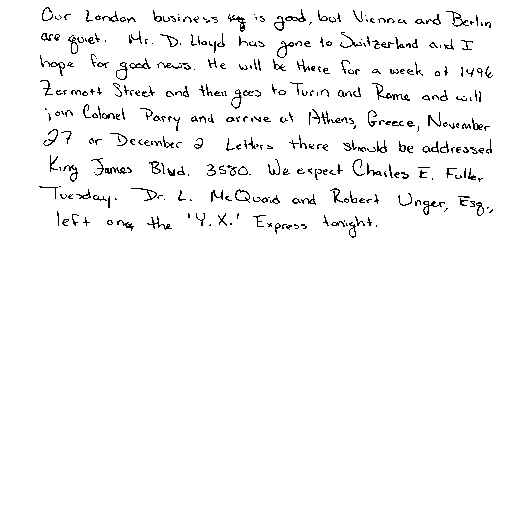 Our London business is good, but Vienna and Berlin
are quiet. Mr. D. Lloyd has gone to Switzerland and I
hope for good news. He will be there for a week at 1496
Zermott Street and then goes to Turin and Rome and will
join Colonel Parry and arrive at Athens, Greece, November
27 or December 2 Letters there should be addressed
King James Blvd. 3580. We expect Charles E. Fuller
Tuesday. Dr. L. McQuaid and Robert Unger, Esq.,
left on the 'Y.X.' Express tonight.